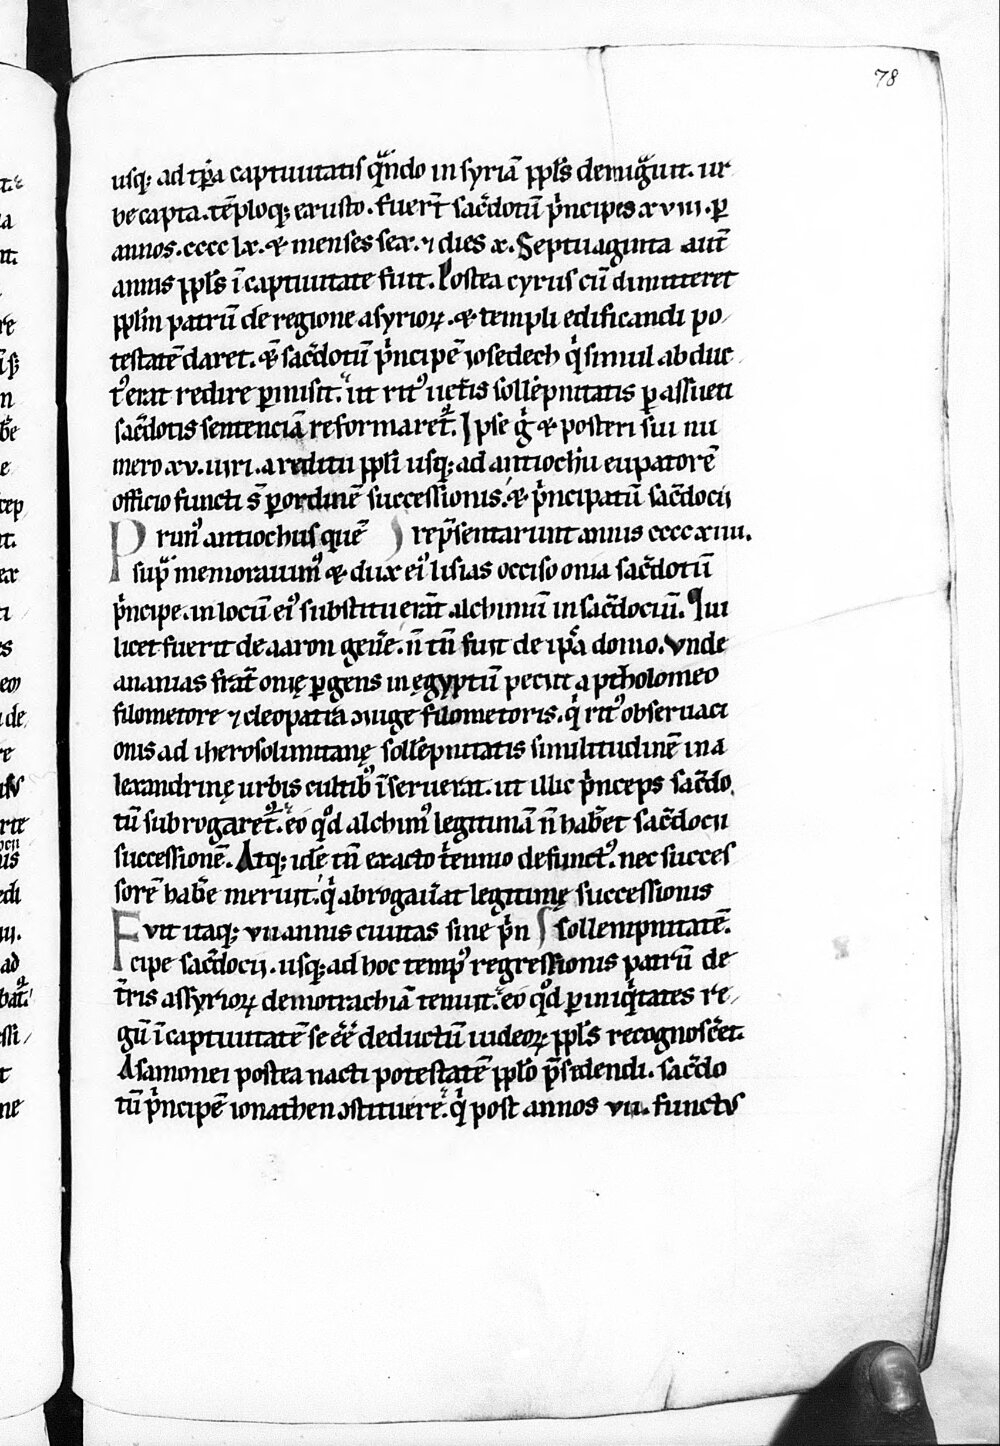 78
usq; ad tp̄a captiuitatis q̃ndo in syriā ppl̄s demigͣuit. ur
be capta. tēploq; exusto. fuer̄t sac̄dotū pͥncipes xviii. p̄
annos. cccc lx. & menses sex. ⁊ dies x. Septuaginta aut̄
annis ppl̄s ī captiuitate fuit. Postea cyrus cū dimitteret
ppl̄m patrū de regione asyrioꝝ. & templi edificandi po/
testatē daret. & sac̄dotū pͥncipē iosedech qͥ simul abduc
tꝰ erat redire ꝑmisit. ut ritꝰ uet̄is sollēpnitatis ꝑ assueti
sac̄dotis sentenciā reformaret᷑. Ipse gͥ & posteri sui nu
mero xv. uiri. a reditu ppl̄i usq; ad antiochū eupatorē
officio functi s̄ ꝑ ordinē successionis. & pͥncipatū sac̄docii
Primꝰ antiochus quē rep̄sentarunt annis cccc xiiii.
supͣ memorauimꝰ & dux eiꝰ lisias occiso onia sac̄dotū
pͥncipe. in locū eiꝰ substituerāt alchimū in sac̄dociū. Qui
licet fuerit de aaron gen̄e. n̄ tn̄ fuit de ip̄a domo. Vnde
ananias frat̄ onię ꝑgens in ęgyptū peciit a ptholomeo
filometore ⁊ cleopatra ɔiuge filometoris. qͥ ritꝰ obseruaci
onis ad iherosolimitanę sollēpnitatis similitudinē in a
lexandrinę urbis cultibꝰ īseruerat. ut illic pͥnceps sac̄do
tū subrogaret᷑. eo qͦd alchimꝰ legitimā n̄ hab̄et sac̄docii
successionē. Atq; idē cū exacto t̄ennio defunctꝰ. nec succes
sorē hab̄e meruit. qͥ abrogau̅at legitimę successionis
Fvit itaq; vii annis ciuitas sine pͥn sollempnitatē.
cipe sac̄docii. usq; ad hoc tempꝰ regressionis patrū de
t̄ris assyrioꝝ demotrachiā tenuit. eo qͦd ꝑ iniqͥtates re/
gū ī captiuitatē se eē deductū iudeoꝝ ppl̄s recognosc̄et.
Asamonei postea nacti potestatē ppl̄o p̄sidendi. sac̄do
tū pͥncipē ionathen ɔstituere. qͥ post annos vii. functus